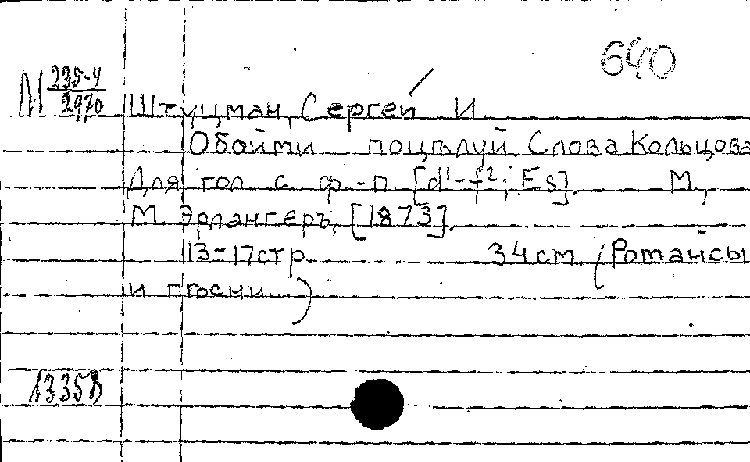 640
М 235-4/2970
Штуцман, Сергей И.
Обойми поцѣлуй. Слова Кольцова
Для гол. с ф.-п. [d¹-f²; Es]. М.,
М. Эрлангеръ, [1873].
13-17 стр. 34 см (Романсы
и песни)
13358